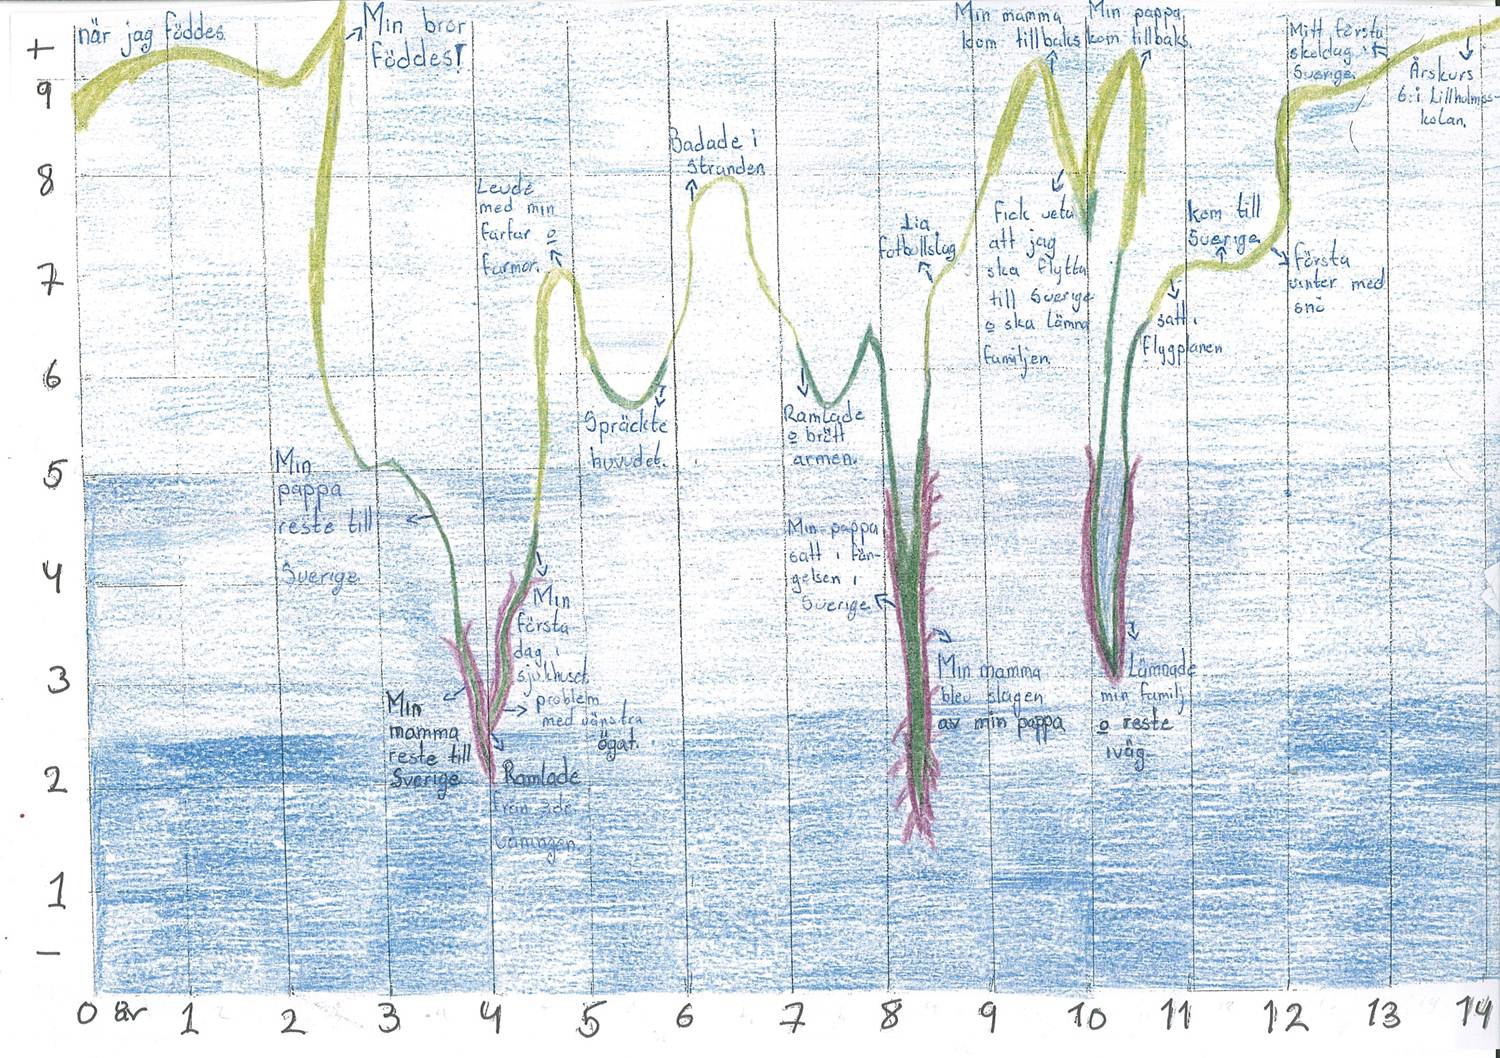 när jag föddes.
Min bror
föddes!
Min pappa
reste till
Sverige.
Min
mamma
reste till
Sverige
Ramlade
från 3:de
våningen.
problem
med vänstra
ögat.
Min
första
dag i
sjukhuset
Levde
med min
farfar o
farmor.
Spräckte
huvudet.
Badade i
stranden
Ramlade
o brött
armen.
Min pappa
satt i fän-
gelsen i
Sverige
Min mamma
blev slagen
av min pappa
fotbollslag
Min mamma
kom tillbaks
Fick veta
att jag
ska flytta
till Sverige
o ska lämna
familjen.
Min pappa
kom tillbaks.
Lämnade
min familj
o reste
iväg.
satt i
flygplanen
kom till
Sverige.
första
vinter med
snö
Mitt första
skoldag i
Sverige.
Årskurs
6:i Lillholmss-
kolan.
+
9
8
7
6
5
4
3
2
1
-
0 år 1 2 3 4 5 6 7 8 9 10 11 12 13 14